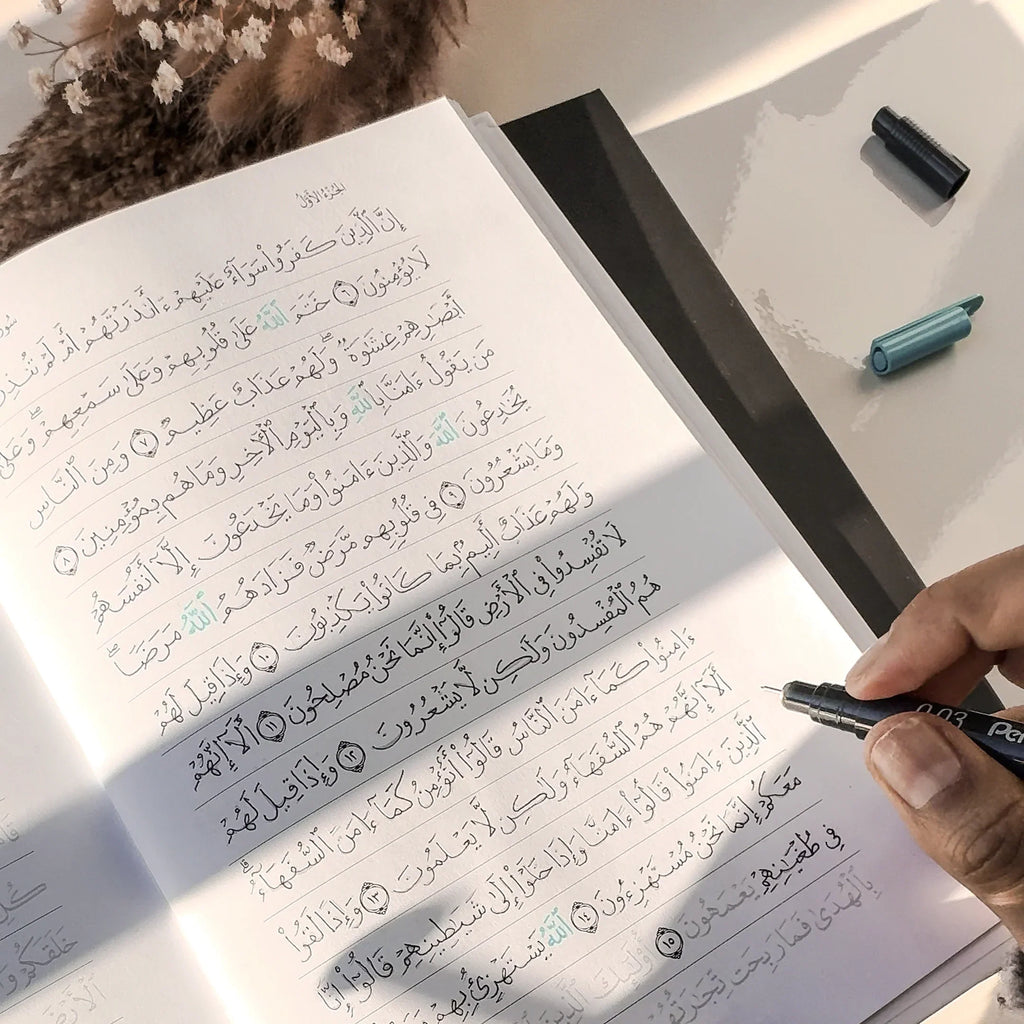 الجزء الأول
إِنَّ ٱلَّذِينَ كَفَرُوا۟ سَوَآءٌ عَلَيْهِمْ ءَأَنذَرْتَهُمْ أَمْ لَمْ تُنذِرْ
لَا يُؤْمِنُونَ ٦ خَتَمَ ٱللَّهُ عَلَىٰ قُلُوبِهِمْ وَعَلَىٰ سَمْعِهِمْ ۖ وَعَلَىٰ
أَبْصَٰرِهِمْ غِشَٰوَةٌ ۖ وَلَهُمْ عَذَابٌ عَظِيمٌ ٧ وَمِنَ ٱلنَّاسِ
مَن يَقُولُ ءَامَنَّا بِٱللَّهِ وَبِٱلْيَوْمِ ٱلْأَخِرِ وَمَا هُم بِمُؤْمِنِينَ ٨
يُخَٰدِعُونَ ٱللَّهَ وَٱلَّذِينَ ءَامَنُوا۟ وَمَا يَخْدَعُونَ إِلَّآ أَنفُسَهُمْ
وَمَا يَشْعُرُونَ ٩ فِى قُلُوبِهِم مَّرَضٌ فَزَادَهُمُ ٱللَّهُ مَرَضًا ۖ
وَلَهُمْ عَذَابٌ أَلِيمٌۢ بِمَا كَانُوا۟ يَكْذِبُونَ ١٠ وَإِذَا قِيلَ لَهُمْ
لَا تُفْسِدُوا۟ فِى ٱلْأَرْضِ قَالُوٓا۟ إِنَّمَا نَحْنُ مُصْلِحُونَ ١١ أَلَآ إِنَّهُمْ
هُمُ ٱلْمُفْسِدُونَ وَلَٰكِن لَّا يَشْعُرُونَ ١٢ وَإِذَا قِيلَ لَهُمْ
ءَامِنُوا۟ كَمَآ ءَامَنَ ٱلنَّاسُ قَالُوٓا۟ أَنُؤْمِنُ كَمَآ ءَامَنَ ٱلسُّفَهَآءُ ۗ
أَلَآ إِنَّهُمْ هُمُ ٱلسُّفَهَآءُ وَلَٰكِن لَّا يَعْلَمُونَ ١٣ وَإِذَا لَقُوا۟
ٱلَّذِينَ ءَامَنُوا۟ قَالُوٓا۟ ءَامَنَّا وَإِذَا خَلَوْا۟ إِلَىٰ شَيَٰطِينِهِمْ قَالُوٓا۟ إِنَّا
مَعَكُمْ إِنَّمَا نَحْنُ مُسْتَهْزِءُونَ ١٤ ٱللَّهُ يَسْتَهْزِئُ بِهِمْ
فِى طُغْيَٰنِهِمْ يَعْمَهُونَ ١٥ أُو۟لَٰٓئِكَ ٱلَّذِينَ
بِٱلْهُدَىٰ فَمَا رَبِحَت تِّجَٰرَتُهُمْ
خَلَقَكُمْ
0.03 Pen